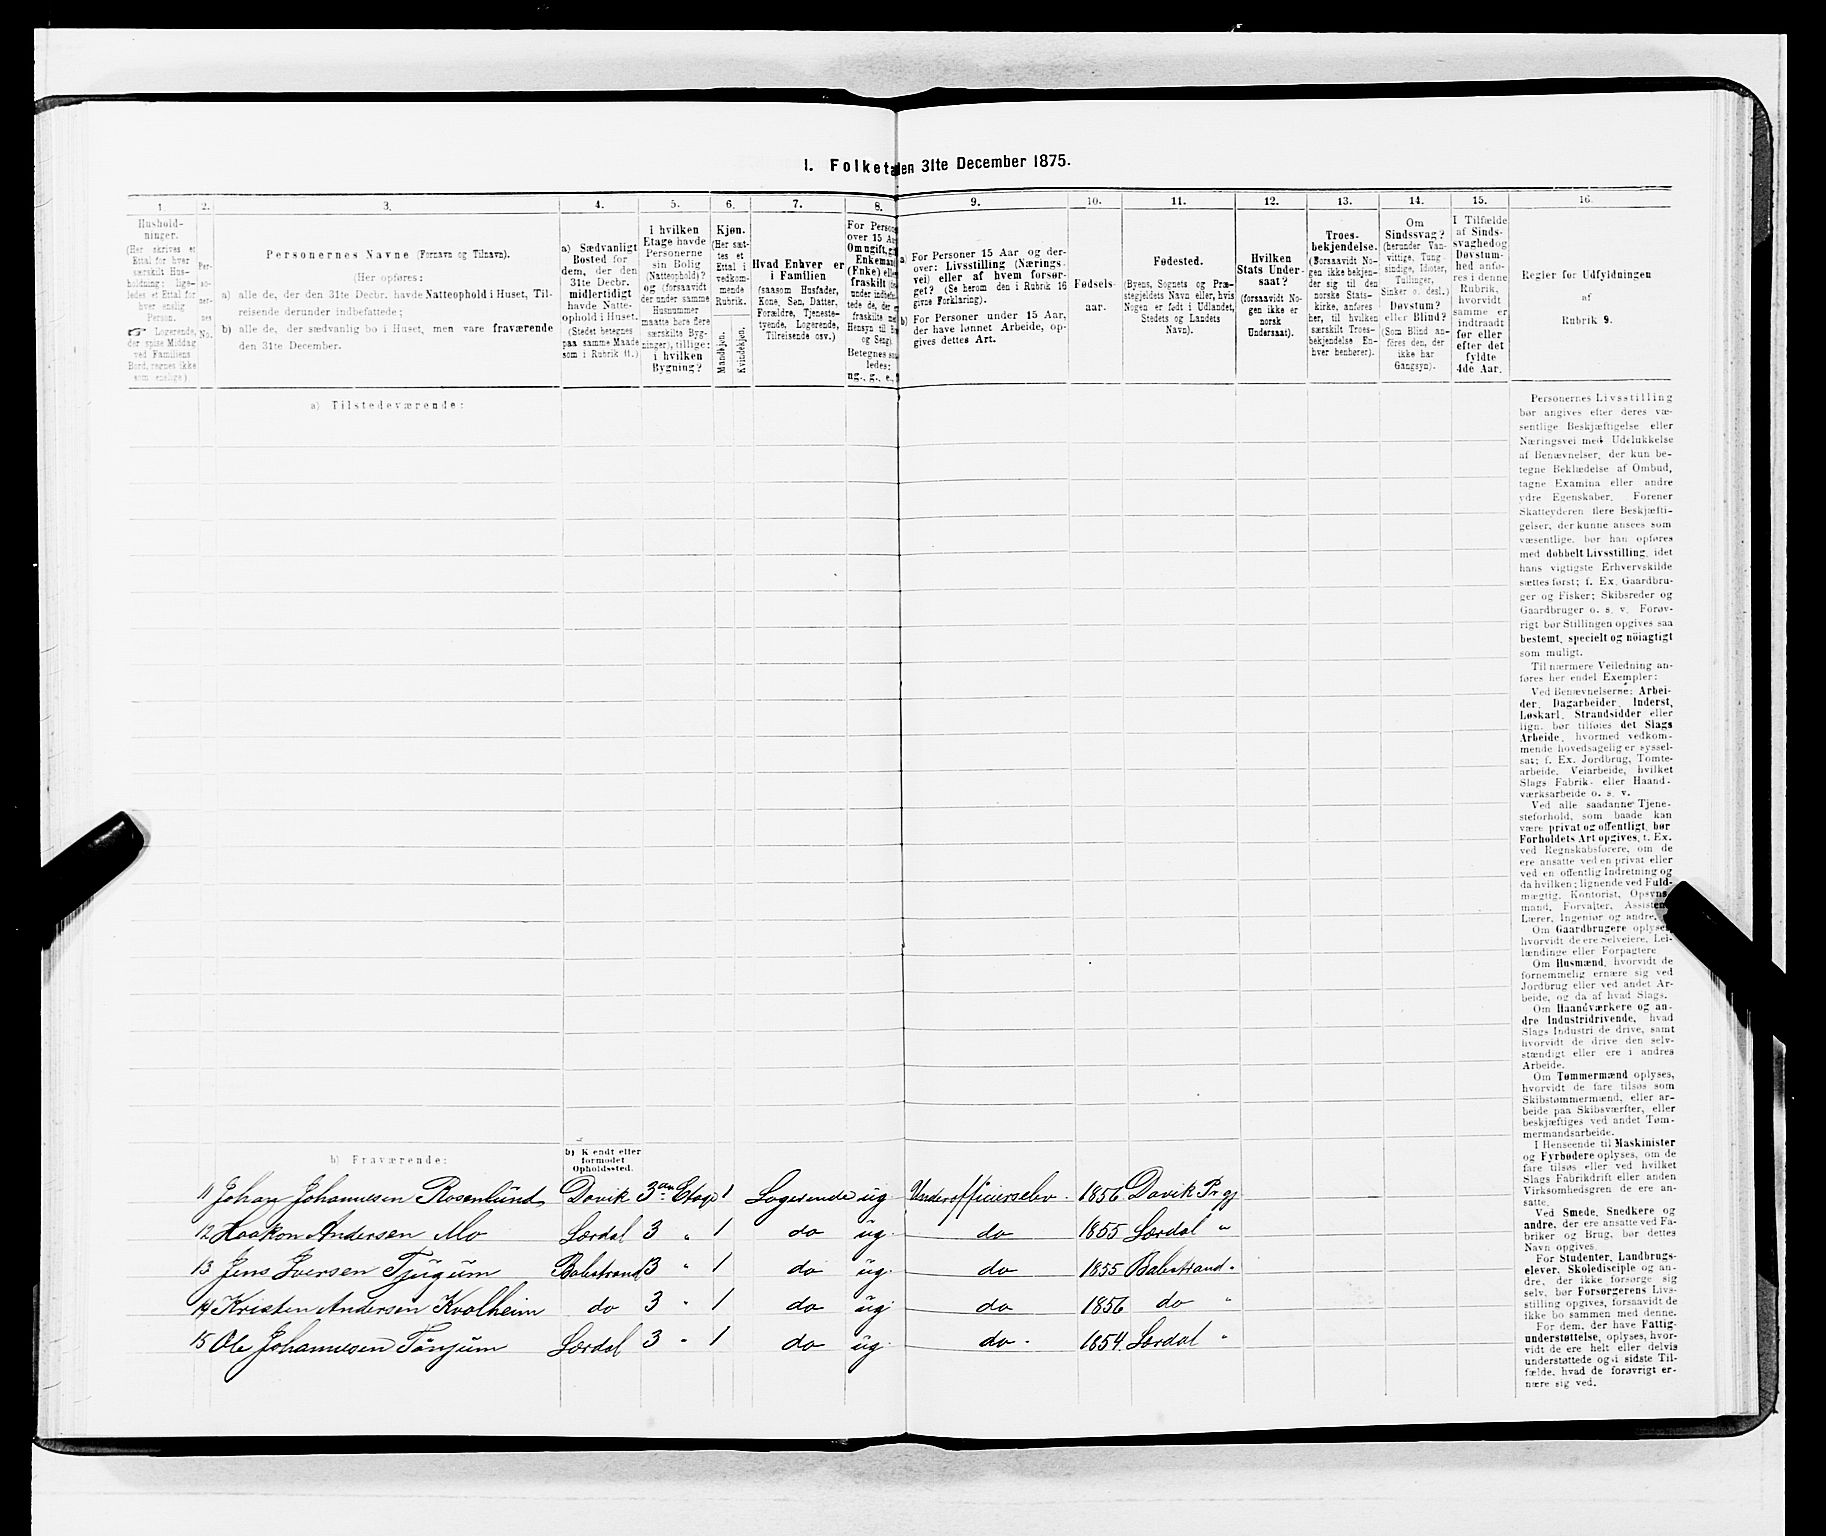 1. Folketa en 31te December 1875.
1.
2.
3.
4.
5.
6.
7.
8.
9.
10.
11.
12.
13.
14.
15.
16.
Hushold-
ninger.
(Her skrives et
Ettal for hver
særskilt Hus-
holdning; lige-
ledes et Ettal for
hver enslig
Person.
☞ Logerende,
der spise Middag
ved Familiens
Bord, regnes ikke
som enslige)
Per-
soner-
nes
No.
Personernes Navne (Fornavn og Tilnavn).
(Her opføres:
a) alle de, der den 31te Decbr. havde Natteophold i Huset, Til-
reisende derunder indbefattede;
b) alle de, der sædvanlig bo i Huset, men vare fraværende
den 31te December.
a) Sædvanligt
Bosted for
dem, der den
31te Decbr.
midlertidigt
havde Natte-
ophold i Huset.
(Stedet betegnes
paa samme Maade
som i Rubrik 11.)
I hvilken
Etage havde
Personerne
sin Bolig
(Natteophold)?
og (forsaavidt
der under samme
Husnummer
maatte høre flere
særskilte Byg-
ninger), tillige:
i hvilken
Bygning?
Kjøn.
(Her sæt-
tes et
Ettal i
vedkom-
mende
Rubrik.
Mandkjøn.
Kvindekjøn.
Hvad Enhver er
i Familien
(saasom Husfader,
Kone, Søn, Datter,
Forældre, Tjeneste-
tyende, Logerende,
Tilreisende osv.)
For Person
over 15 Aa
Om ugift, g
Enkeman
(Enke) elle
fraskilt
under indbef
tede de, der
fraskilte
Hensyn til B
og Seng).
Betegnes s
ledes:
ug., g., e.,
a) For Personer 15 Aar og der-
over: Livsstilling (Nærings
vei) eller af hvem forsør-
get? (Se herom den i Rubrik 16
givne Forklaring).
b) For Personer under 15 Aar,
der have lønnet Arbeide, op-
gives dettes Art.
Fødsels-
aar.
Fødested.
(Byens, Sognets og Præ-
stegjeldets Navn eller, hvis
Nogen er født i Udlandet,
Stedets og Landets
Navn).
Hvilken
Stats Under-
saat?
(forsaavidt No-
gen ikke er
norsk
Undersaat).
Troes-
bekjendelse.
(Forsaavidt No-
gen ikke bekjen-
der sig til den
norske Stats-
kirke, anføres
her, til hvilken
særskilt Troes-
bekjendelse En-
hver henhører).
Om
Sindssvag?
(herunder Van-
vittige, Tung-
sindige, Idioter,
Tullinger,
Sinker o. desl.)
Døvstum?
eller Blind?
(Som Blind an-
føres den, der
ikke har
Gangsyn).
I Tilfælde
af Sinds-
svaghed og
Døvstum-
hed anfø-
res i denne
Rubrik,
hvorvidt
samme er
indtraadt
før eller
efter det
fyldte
4de Aar.
Regler for Udfyldningen
af
Rubrik 9.
a) Tilstedeværende:
Personernes Livsstilling
bør angives efter deres væ-
sentlige Beskjæftigelse eller
Næringsvei med Udelukkelse
af Benævnelser, der kun be-
tegne Beklædelse af Ombud,
tagne Examina eller andre
ydre Egenskaber. Forener
Skatteyderen flere Beskjæfti-
gelser, der kunne ansees som
væsentlige, bør han opføres
med dobbelt Livsstilling, idet
hans vigtigste Erhvervskilde
sættes først; f. Ex. Gaardbru-
ger og Fisker; Skibsreder og
Gaardbruger o. s. v. Forøv-
rigt bør Stillingen opgives saa
bestemt, specielt og nöiagtigt
som muligt.
Til nærmere Veiledning an-
føres her endel Exempler:
Ved Benævnelserne: Arbei-
der, Dagarbeider, Inderst,
Løskarl, Strandsidder eller
lign. bør tilføies det Slags
Arbeide, hvormed vedkom-
mende hovedsagelig er syssel-
sat; f. Ex. Jordbrug, Tomte-
arbeide, Veiarbeide, hvilket
Slags Fabrik- eller Haand-
værksarbeide o. s. v.
Ved alle saadanne Tjene-
steforhold, som baade kan
være privat og offentligt, bør
Forholdets Art opgives, f. Ex.
ved Regnskabsførere, om de
ere ansatte ved en privat eller
ved en offentlig Indretning og
da hvilken; lignende ved Fuld-
mægtig, Kontorist, Opsyns-
mand, Forvalter, Assistent,
Lærer, Ingeniør og andre.
Om Gaardbrugere oplyses,
hvorvidt de ere Selveiere, Lei-
lændinge eller Forpagtere
Om Husmænd, hvorvidt de
fornemmelig ernære sig ved
Jordbrug eller ved andet Ar-
beide, og da af hvad Slags.
Om Haandværkere og an-
dre Industridrivende, hvad
Slags Industri de drive, samt
hvorvidt de drive den selv-
stændigt eller ere i andres
Arbeide.
Om Tømmermænd oplyses,
hvorvidt de fare tilsøs som
Skibstømmermænd, eller ar-
beide paa Skibsværfter, eller
beskjæftiges ved andet Tøm-
mermandsarbeide.
I Henseende til Maskinister
og Fyrbødere oplyses, om de
fare tilsøs eller ved hvilket
Slags Fabrikdrift eller anden
Virksomhedsgren de ere an-
satte.
Ved Smede, Snedkere og
andre, der ere ansatte ved Fa-
briker og Brug, bør dettes
Navn opgives.
For Studenter, Landbrugs-
elever, Skoledisciple og an-
dre, der ikke forsørge sig
selv, bør Forsørgerens Livs-
stilling opgives, forsaavidt de
ikke bo sammen med denne.
For dem, der have Fattig-
understøttelse, oplyses, hvor-
vidt de ere helt eller delvis
understøttede og i sidste Til-
fælde, hvad de forøvrigt er-
nære sig ved.
b) Fraværende:
b) Kjendt eller
formodet
Opholdssted.
11 Johan Johannesen Rosenlund Davik 3die Etage 1 Logerende ug Underofficierselev. 1856 Davik Pr gj
12 Haakon Andersen Mo Lærdal 3 " 1 do ug. do 1855 Lærdal "
13 Jens Iversen Tjugum Balestrand 3 " 1 do ug. do 1855 Balestrand "
14 Kristen Andersen Kvalheim do 3 " 1 do ug. do 1856 do "
15 Ole Johannesen Tønjum Lærdal 3 " 1 do ug. do. 1854. Lærdal "